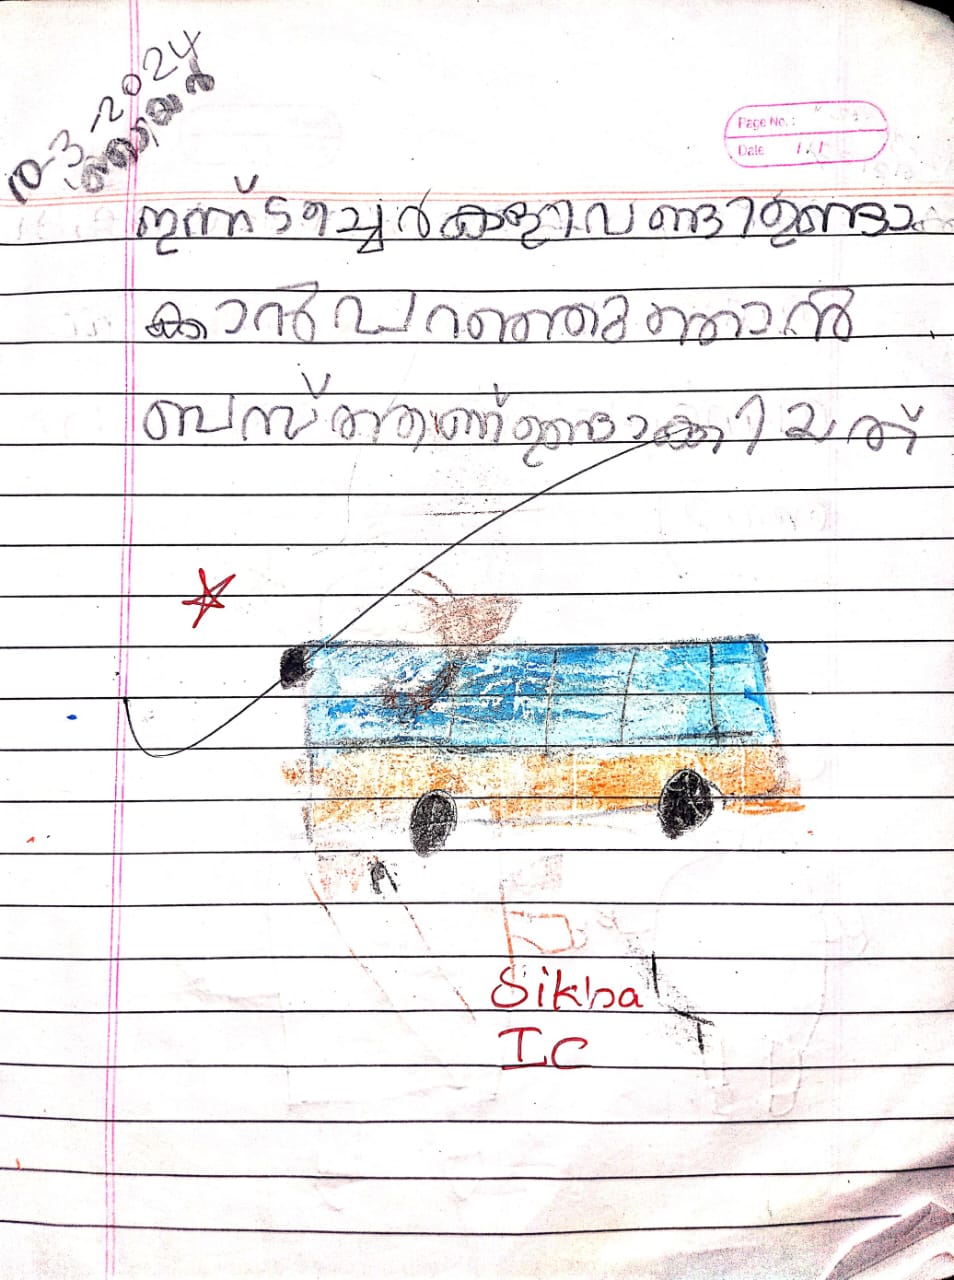 10-3-2024
Page No. :
Date
ഇന്ന് ടീച്ചർ കളിവണ്ടി ഉണ്ടാ
ക്കാൻ പറഞ്ഞു ഞാൻ
ബസ് ആണ് ഉണ്ടാക്കിയത്
Sikha
IC